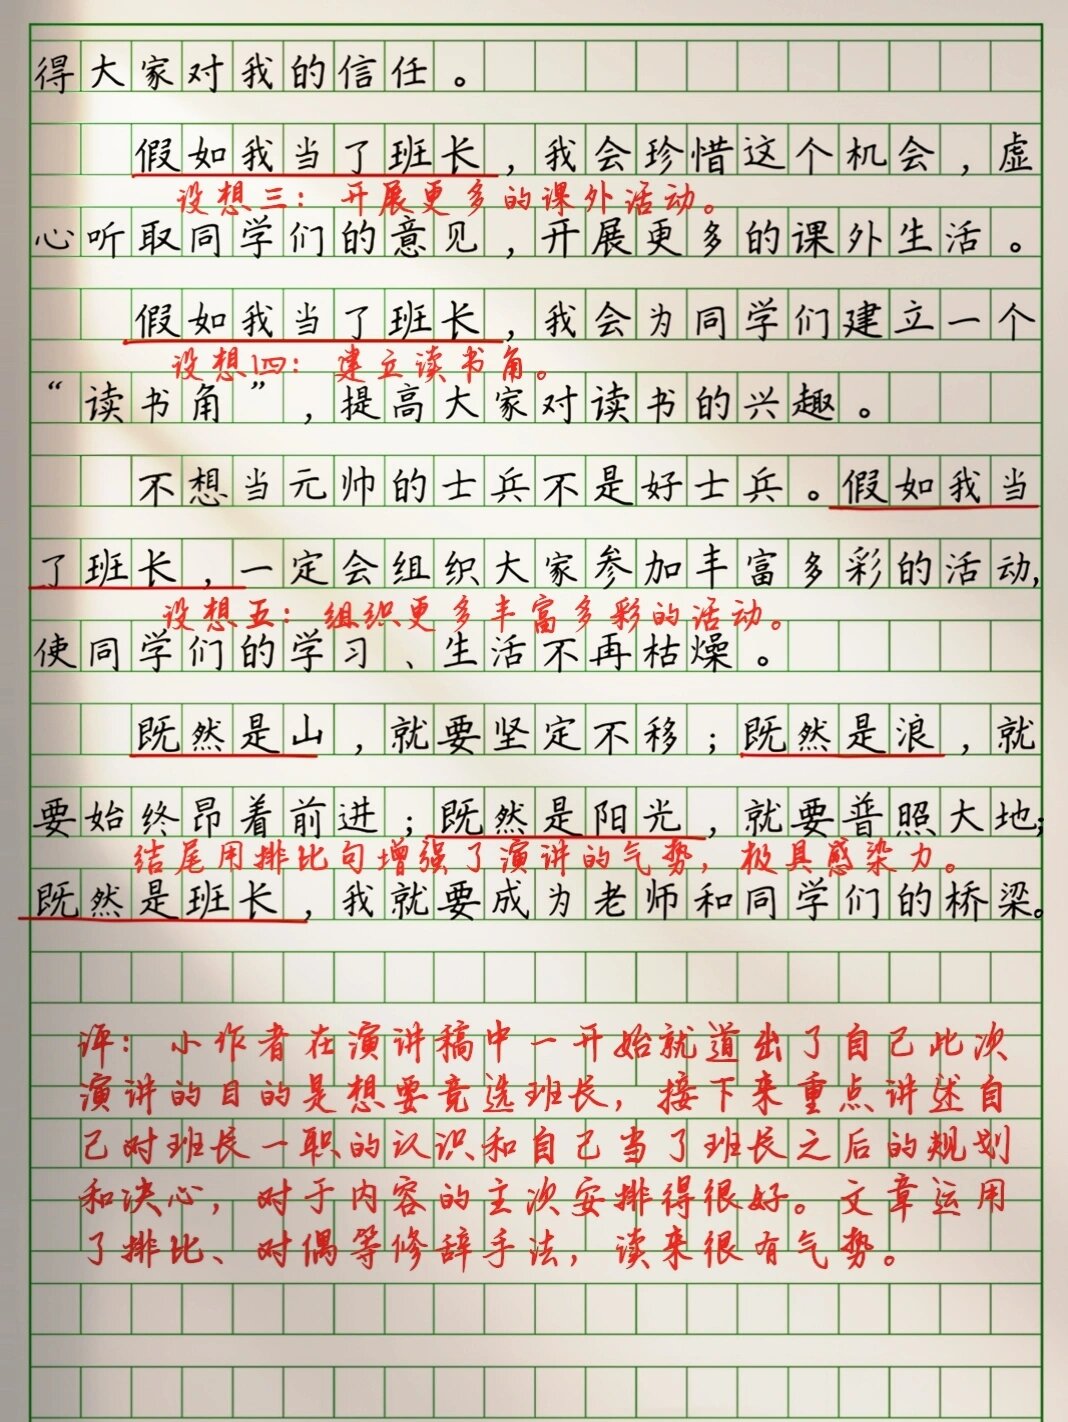 得大家对我的信任。
假如我当了班长，我会珍惜这个机会，虚
设想三：开展更多的课外活动。
心听取同学们的意见，开展更多的课外生活。
假如我当了班长，我会为同学们建立一个
设想四：建立读书角。
“读书角”，提高大家对读书的兴趣。
不想当元帅的士兵不是好士兵。假如我当
了班长，一定会组织大家参加丰富多彩的活动，
设想五：组织更多丰富多彩的活动。
使同学们的学习、生活不再枯燥。
既然是山，就要坚定不移；既然是浪，就
要始终昂着前进；既然是阳光，就要普照大地；
结尾用排比句增强了演讲的气势，极具感染力。
既然是班长，我就要成为老师和同学们的桥梁。
评：小作者在演讲稿中一开始就道出了自己此次
演讲的目的是想要竞选班长，接下来重点讲述自
己对班长一职的认识和自己当了班长之后的规划
和决心，对于内容的主次安排得很好。文章运用
了排比、对偶等修辞手法，读来很有气势。